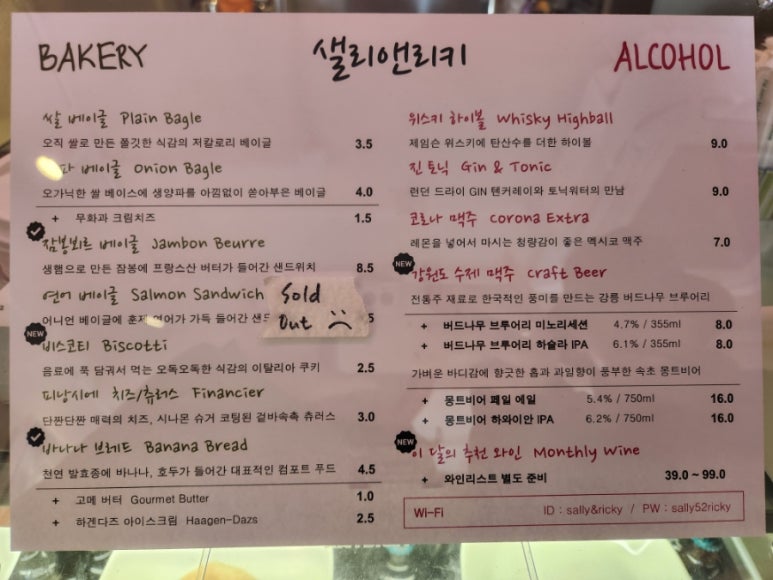 BAKERY
샐리앤리키
ALCOHOL
쌀 베이글 Plain Bagle
오직 쌀로 만든 쫄깃한 식감의 저칼로리 베이글 3.5
파 베이글 Onion Bagle
오가닉한 쌀 베이스에 생양파를 아낌없이 쏟아부은 베이글 4.0
+ 무화과 크림치즈 1.5
잠봉뵈르 베이글 Jambon Beurre
생햄으로 만든 잠봉에 프랑스산 버터가 들어간 샌드위치 8.5
연어 베이글 Salmon Sandwich
어니언 베이글에 훈제 연어가 가득 들어간 5
Sold
Out
NEW
비스코티 Biscotti
음료에 푹 담궈서 먹는 오독오독한 식감의 이탈리아 쿠키 2.5
피낭시에 치즈/츄러스 Financier
단짠단짠 매력의 치즈, 시나몬 슈거 코팅된 겉바속촉 츄러스 3.0
바나나 브레드 Banana Bread
천연 발효종에 바나나, 호두가 들어간 대표적인 컴포트 푸드 4.5
+ 고메 버터 Gourmet Butter 1.0
+ 하겐다즈 아이스크림 Haagen-Dazs 2.5
위스키 하이볼 Whisky Highball
제임슨 위스키에 탄산수를 더한 하이볼 9.0
진 토닉 Gin & Tonic
런던 드라이 GIN 텐커레이와 토닉워터의 만남 9.0
코로나 맥주 Corona Extra
레몬을 넣어서 마시는 청량감이 좋은 멕시코 맥주 7.0
NEW
강원도 수제 맥주 Craft Beer
전통주 재료로 한국적인 풍미를 만드는 강릉 버드나무 브루어리
+ 버드나무 브루어리 미노리세션 4.7% / 355ml 8.0
+ 버드나무 브루어리 하슬라 IPA 6.1% / 355ml 8.0
가벼운 바디감에 향긋한 홉과 과일향이 풍부한 속초 몽트비어
+ 몽트비어 페일 에일 5.4% / 750ml 16.0
+ 몽트비어 하와이안 IPA 6.2% / 750ml 16.0
NEW
이 달의 추천 와인 Monthly Wine
+ 와인리스트 별도 준비 39.0 ~ 99.0
Wi-Fi ID : sally&ricky / PW : sally52ricky